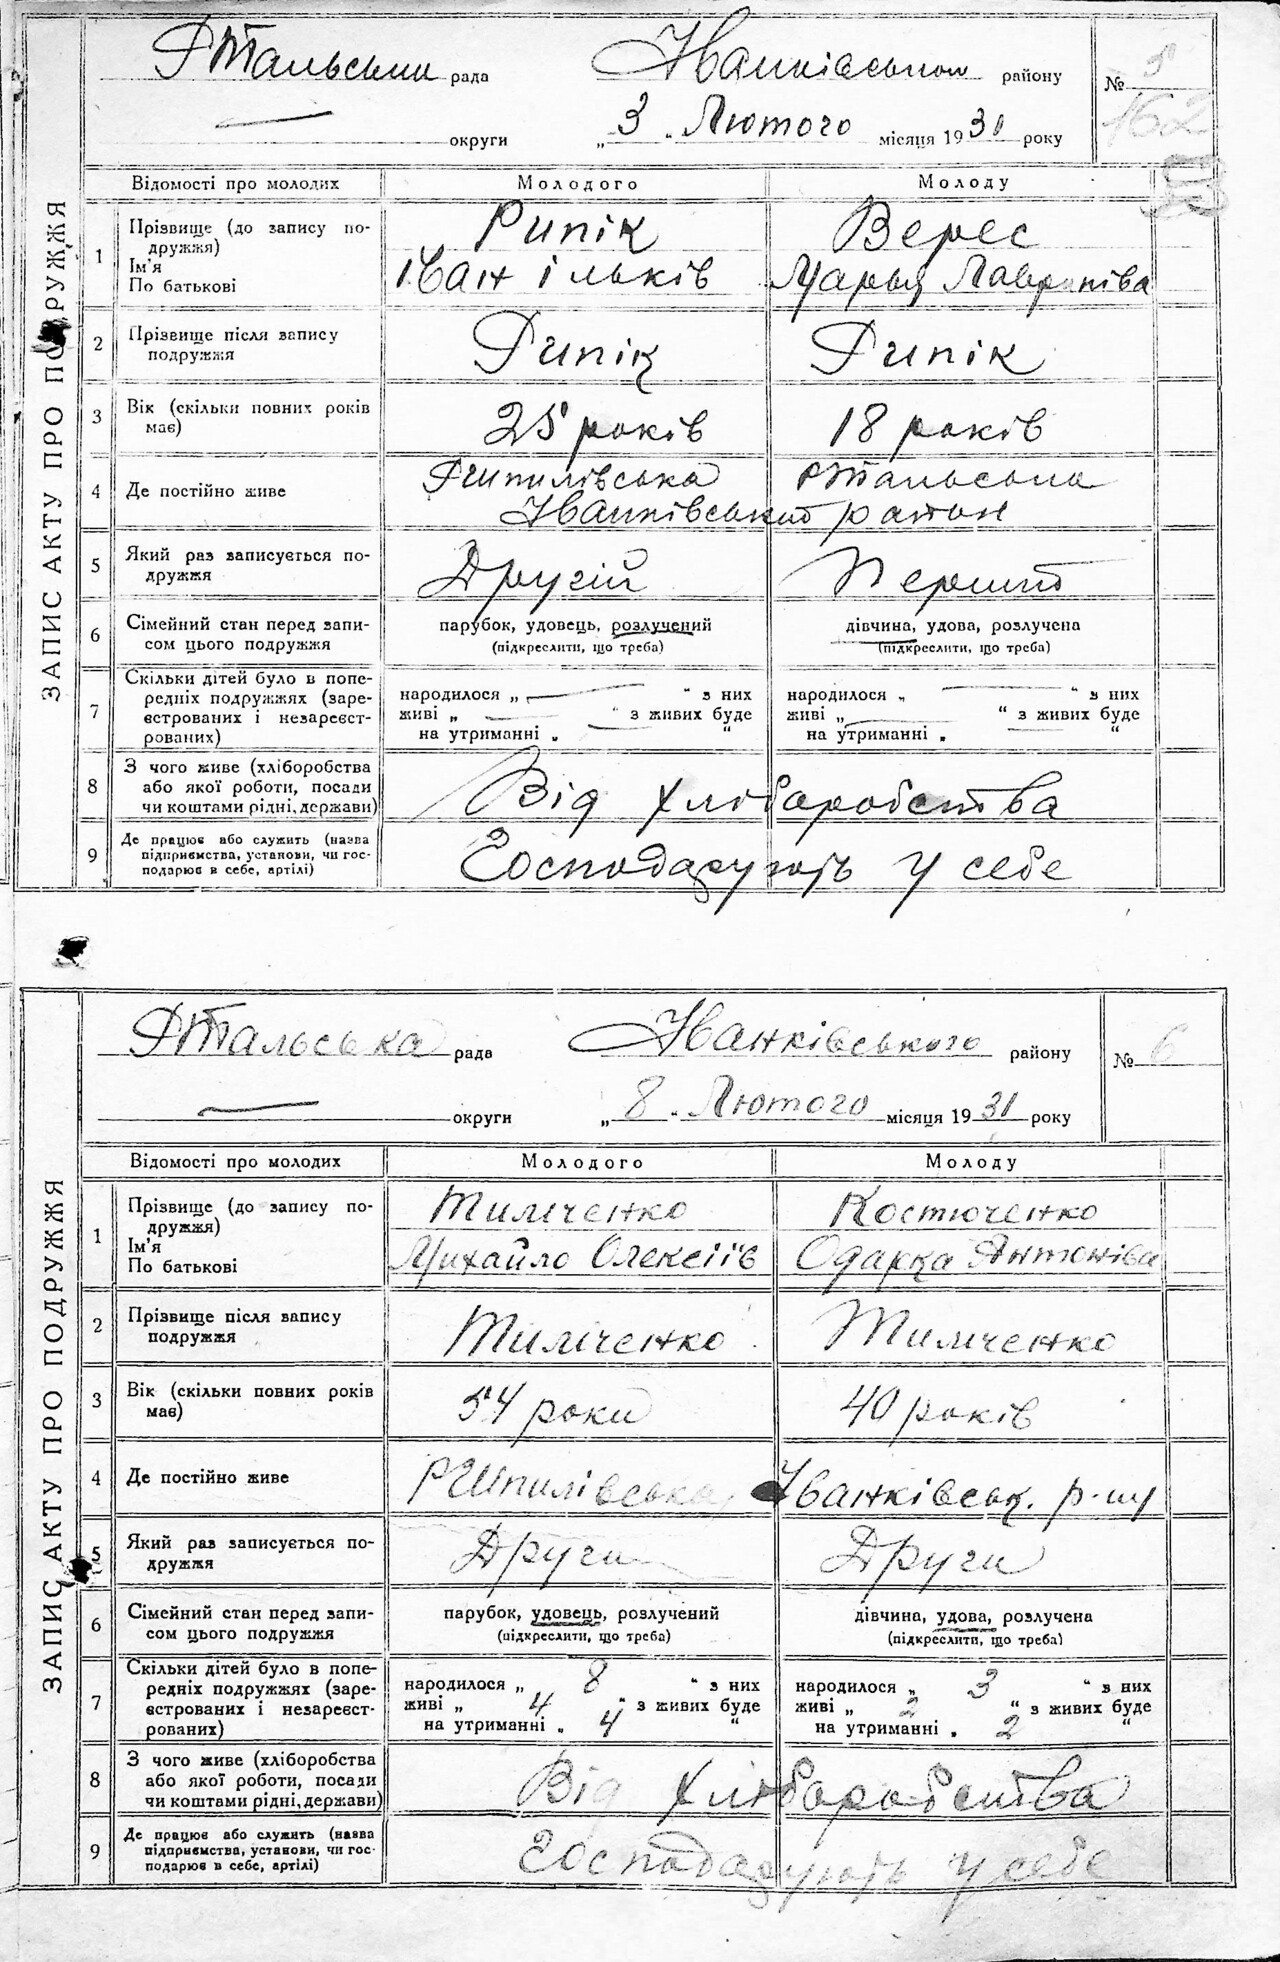 ЗАПИС АКТУ ПРО ПОДРУЖЖЯ
рада Іванківського району № 5
162
округи „3“ Лютого місяця 1931 року
Відомості про молодих Молодого Молоду
1 Прізвище (до запису по-
дружжя)
Ім'я
По батькові
Рипік
Іван Ільків
Верес
Марья Лавриніва
2 Прізвище після запису
подружжя
Рипік Рипік
3 Вік (скільки повних років
має)
25 років 18 років
4 Де постійно живе
Іванківський район
5 Який раз записується по-
дружжя
Другій Перший
6 Сімейний стан перед запи-
сом цього подружжя
парубок, удовець, розлучений
(підкреслити, що треба)
дівчина, удова, розлучена
(підкреслити, що треба)
7 Скільки дітей було в попе-
редніх подружжях (заре-
єстрованих і незареєст-
рованих)
народилося „ — “ з них
живі „ — “ з живих буде
на утриманні „ — “
народилося „ — “ з них
живі „ — “ з живих буде
на утриманні „ — “
8 З чого живе (хліборобства
або якої роботи, посади
чи коштами рідні, держави)
Від хліборобства
9 Де працює або служить (назва
підприємства, установи, чи гос-
подарює в себе, артілі)
Господарують у себе
ЗАПИС АКТУ ПРО ПОДРУЖЖЯ
рада Іванківського району № 6
округи „8“ Лютого місяця 1931 року
Відомості про молодих Молодого Молоду
1 Прізвище (до запису по-
дружжя)
Ім'я
По батькові
Тиміченко
Михайло Олексіїв
Костюченко
Одарка Антоніва
2 Прізвище після запису
подружжя
Тиміченко Тиміченко
3 Вік (скільки повних років
має)
54 роки 40 років
4 Де постійно живе
Іванківськ. р-ну
5 Який раз записується по-
дружжя
Други Други
6 Сімейний стан перед запи-
сом цього подружжя
парубок, удовець, розлучений
(підкреслити, що треба)
дівчина, удова, розлучена
(підкреслити, що треба)
7 Скільки дітей було в попе-
редніх подружжях (заре-
єстрованих і незареєст-
рованих)
народилося „ 8 “ з них
живі „ 4 “ з живих буде
на утриманні „ 4 “
народилося „ 3 “ з них
живі „ 2 “ з живих буде
на утриманні „ 2 “
8 З чого живе (хліборобства
або якої роботи, посади
чи коштами рідні, держави)
Від хліборобства
9 Де працює або служить (назва
підприємства, установи, чи гос-
подарює в себе, артілі)
Господарують у себе